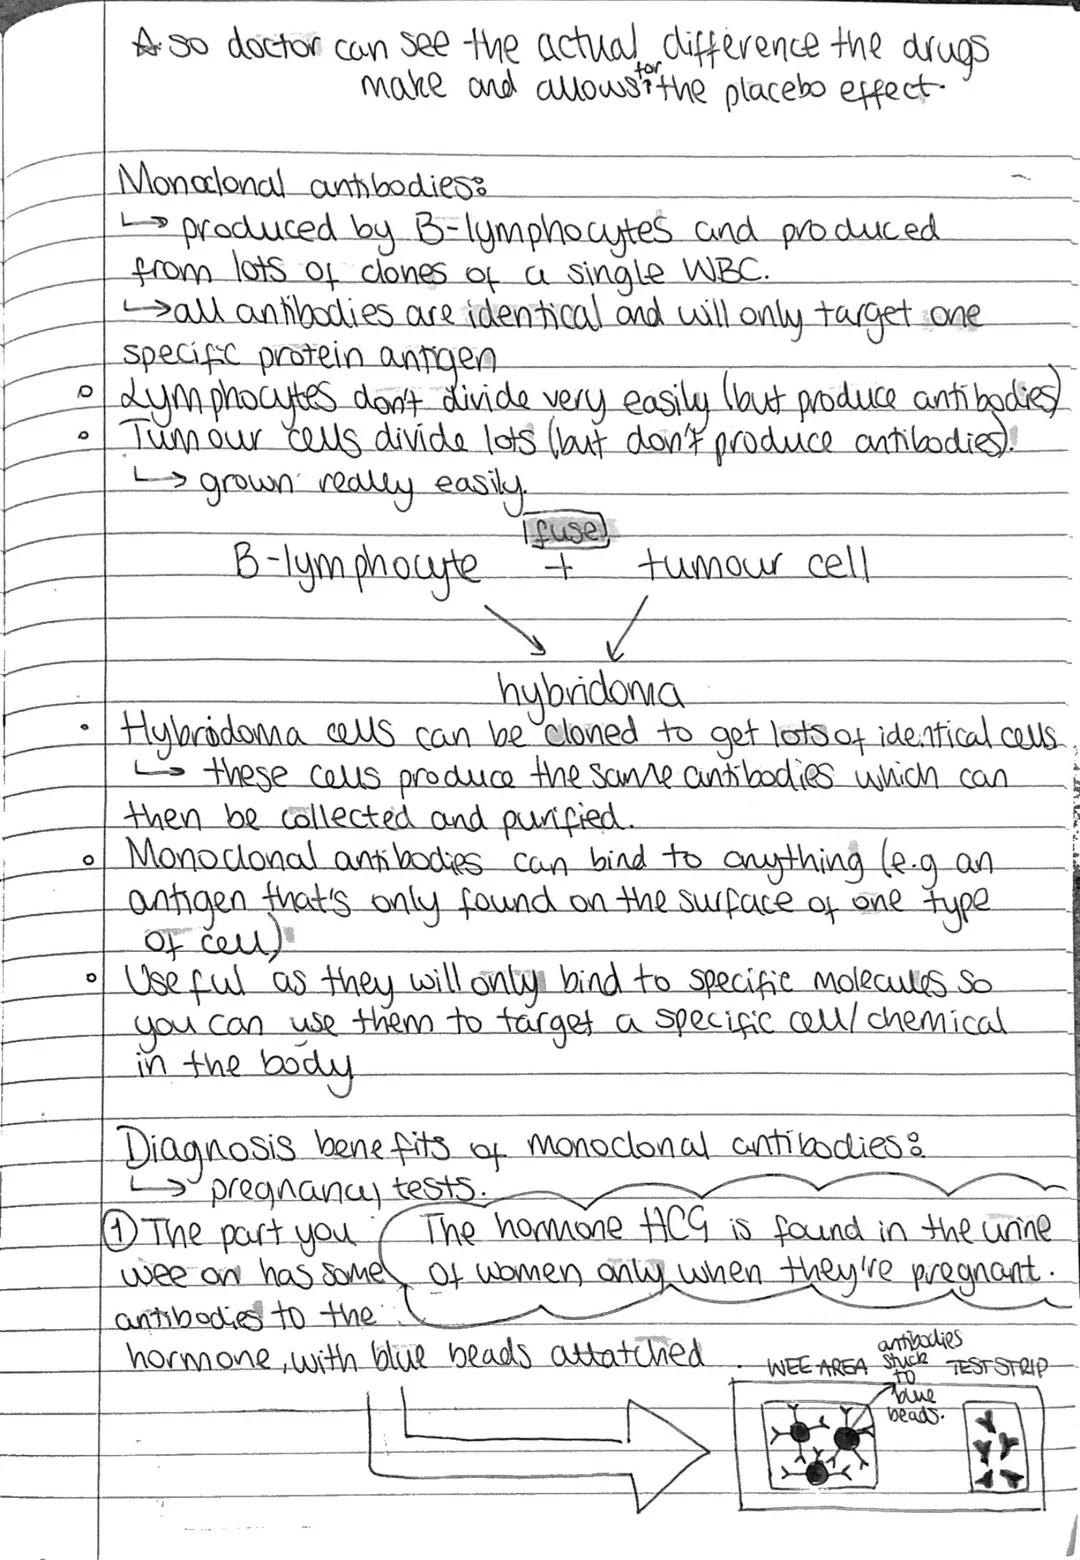 ☆ so doctor can see the actual difference the drugs
make and allows for the placebo effect.
Monoclonal antibodies:
↳ produced by B-lymphocytes and produced
from lots of clones of a single WBC.
↳ all antibodies are identical and will only target one
specific protein antigen
○ Lymphocytes don't divide very easily (but produce antibodies)
○ Tumour cells divide lots (but don't produce antibodies).
↳ grown really easily.
fuse
B-lymphocyte + tumour cell
hybridoma
• Hybridoma cells can be cloned to get lots of identical cells.
↳ these cells produce the same antibodies which can
then be collected and purified.
○ Monoclonal antibodies can bind to anything (e.g an
antigen that's only found on the surface of one type
of cell)
○ Useful as they will only bind to specific molecules so
you can use them to target a specific cell/chemical
in the body
Diagnosis benefits of monoclonal antibodies:
↳ pregnancy tests.
① The part you
wee on has some
antibodies to the
hormone, with blue beads attatched
The hormone HCG is found in the urine
of women only when they're pregnant.
WEE AREA
antibodies
stuck
to
blue
beads.
TEST STRIP